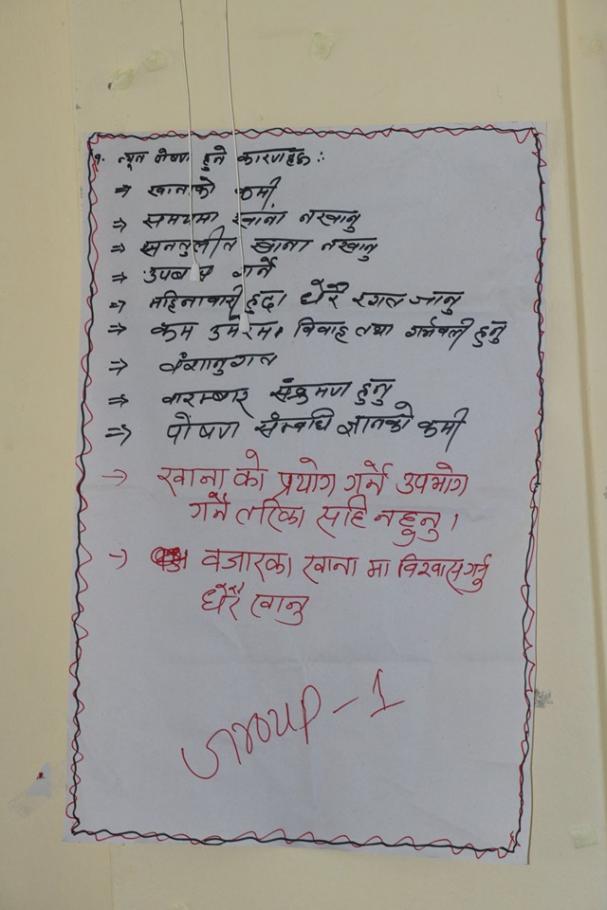 १. न्यून पोषण हुने कारणहरू :-
⇒ खानाको कमी
⇒ समयमा खाना नखानु
⇒ सनतुलीत खाना नखानु
⇒ उपबास गर्ने
⇒ महिनावारी हुदा धेरै रगत जानु
⇒ कम उमेरमा विवाह तथा गर्भवती हुनु
⇒ वंशानुगत
⇒ बारम्बार संक्रमण हुनु
⇒ पोषण संम्बधि ज्ञानको कमी
→ खाना को प्रयोग गर्ने उपभोग
गर्ने तरिका सहि नहुनु।
→ वजारका खाना मा विश्वास गर्नु
धेरै खानु
Group-1